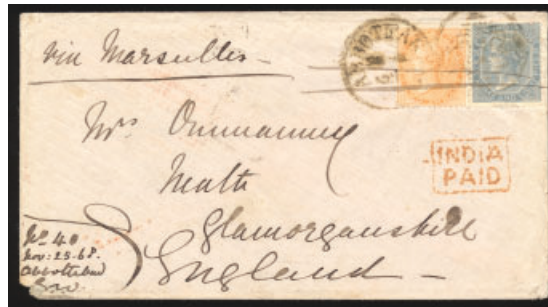 via Marseilles
Mrs Ommanney
Neath
Glamorganshire
England
INDIA
PAID
No 40
Nov: 25. 68.
Abbottabad